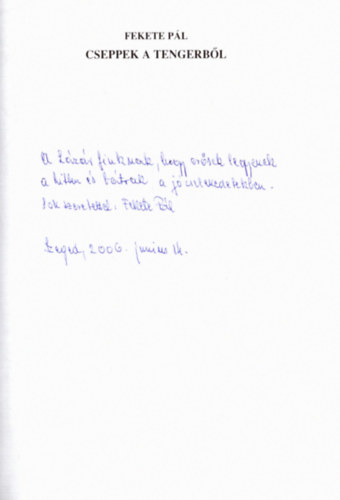 FEKETE PÁL
CSEPPEK A TENGERBŐL
A Lázár fiuknak, hogy erősek legyenek
a hitben és bátrak a jócselekedetekben.
Sok szeretettel: Fekete Pál
Szeged, 2006. június 14.